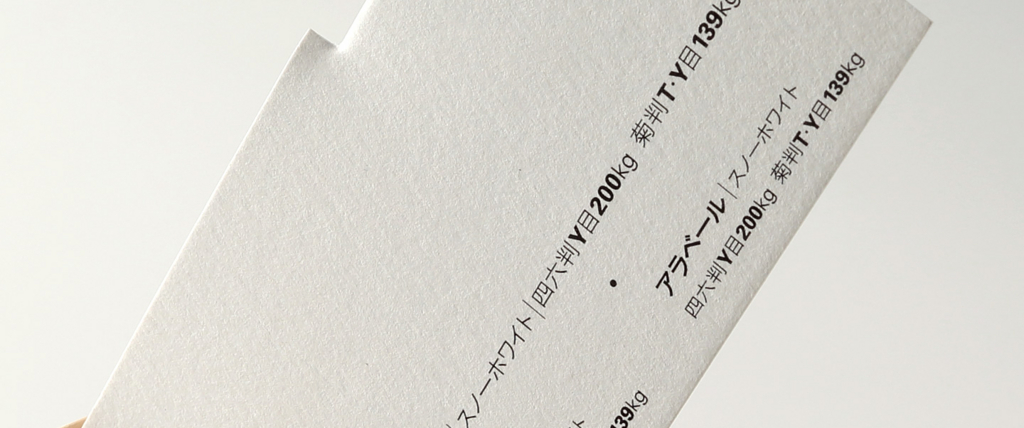 スノーホワイト|四六判Y目200kg 菊判T·Y目139kg
アラベール|スノーホワイト
四六判Y目200kg 菊判T·Y目139kg
139kg